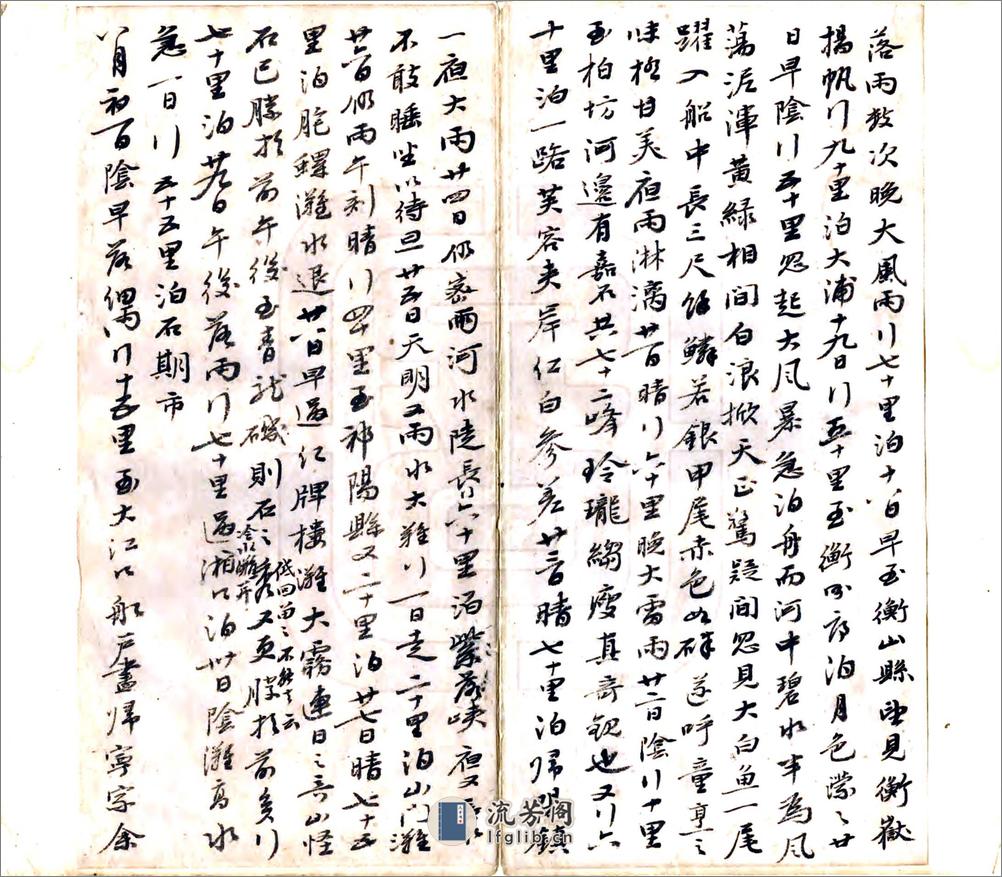 落雨數次晚大風雨行七十里泊十八日早至衡山縣望見衡嶽
揚帆行九十里泊大浦十九日行五十里至衡州府泊月色濛〻廿
日早陰行五十里忽起大風暴急泊舟而河中碧水半為風
蕩泥渾黃綠相間白浪掀天正驚疑間忽見大白魚一尾
躍入船中長三尺餘鱗若銀甲尾赤色如硃遂呼童烹之
味極甘美夜雨淋漓廿一日晴行六十里晚大雷雨廿二日陰行十里
至柏坊河邊有嘉石共七十二峰玲瓏縐瘦真奇觀也又行六
十里泊一路芙容夾岸紅白參差廿三日晴七十里泊歸陽鎮
一夜大雨廿四日仍密雨河水陡長行六十里泊紫羅峽夜又
不敢睡坐以待旦廿五日天明又雨水大難行一日走二十里泊山門灘
廿六日仍雨午刻晴行四十里至祁陽縣又二十里泊廿七日晴七十五
里泊胞鱘灘水退廿八日早過紅牌樓灘大霧連日之奇山怪
石已勝於前午後至青龍磯則石之秀又更勝於前矣行
低回留之不能去云
冷水灘開
七十里泊廿九日午後落雨行七十里過湘口泊卅日陰灘高水
急一日行五十五里泊石期市
八月初一日陰早落偶行十五里至大江口船戶盡歸寧家余
流芳阁
lfglib.cn